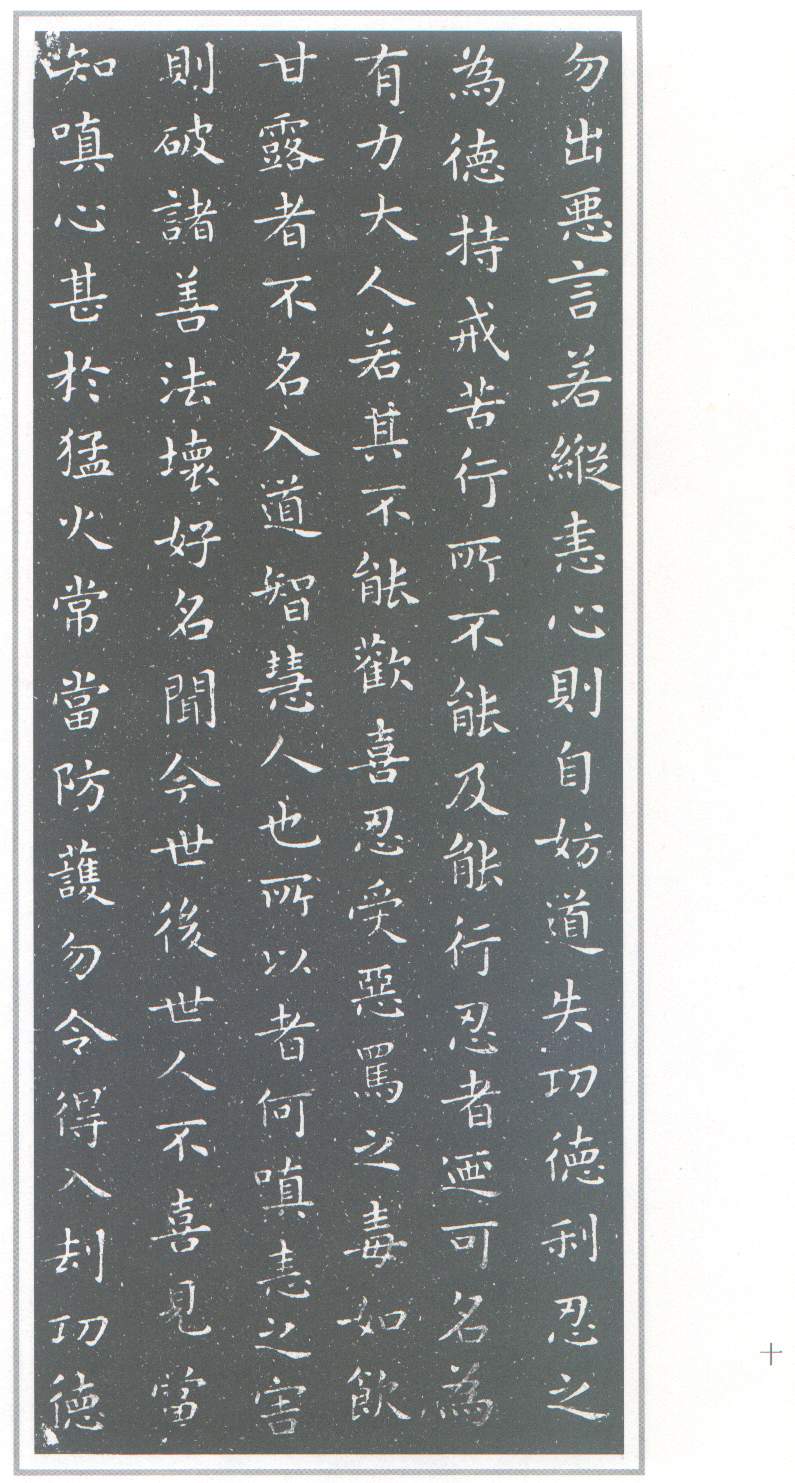 勿出悪言若縱恚心則自妨道失功徳利忍之
為徳持戒苦行所不能及能行忍者迺可名為
有力大人若其不能歡喜忍受惡罵之毒如飲
甘露者不名入道智慧人也所以者何嗔恚之害
則破諸善法壞好名聞今世後世人不喜見當
知嗔心甚於猛火常當防護勿令得入刧功徳
十